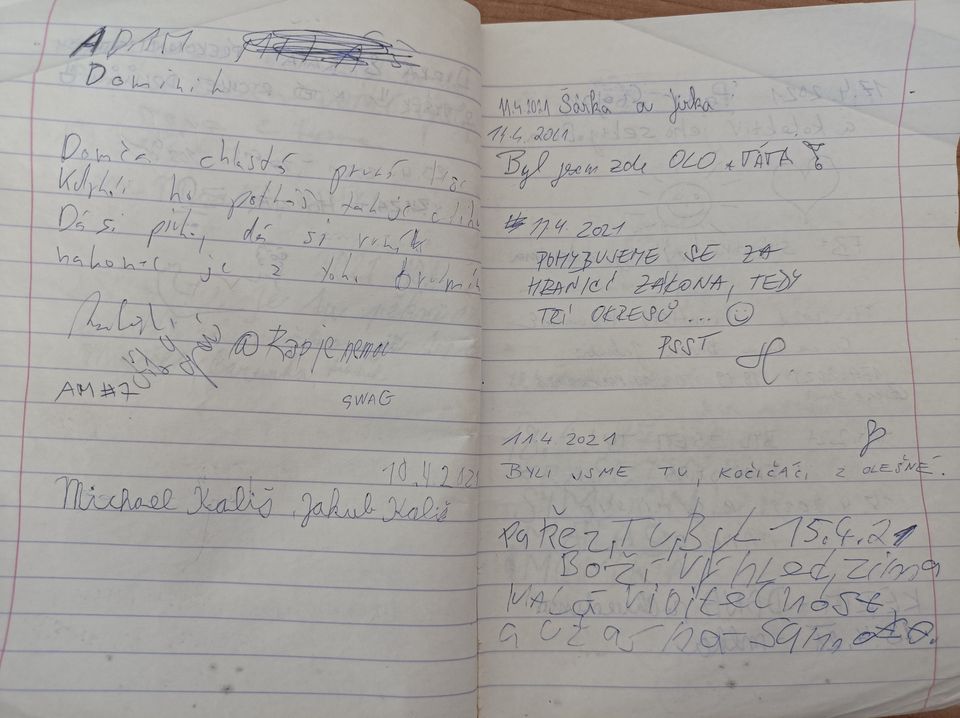 ADAM
Dominik
Domča chlastá první
Kdykoli ho potkáš
Dá si pivko, dá si
nakonec je z toho
@Rapjenemoc
AM#7
SWAG
10.4.2021
Michael Kališ, Jakub Kališ
11.4.2021 Šárka a Jirka
11.4.2021
Byl jsem zde OLO + TÁTA
11.4.2021
POHYBUJEME SE ZA
HRANICÍ ZÁKONA, TEDY
TŘÍ OKRESŮ...
PSST
11.4.2021
BYLI JSME TU, KOČIČÁCI Z OLEŠNÉ.
Pařez, TU, Byl 15.4.21
BOŽÍ VÝhled, zima
viditelnost
a už a na